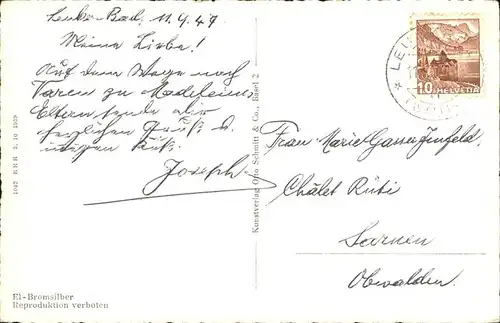 Leuk-Bad, 11.9.47
Meine Liebe!
Auf dem Wege nach
Varen zu Madeleines
Eltern sende dir
herzlichen Gruß u.
innigen Kuß.
Joseph
Frau Marie Gasser-Imfeld
Châlet Rüti
Sarnen
Obwalden.
10 HELVETIA
LEUK
Kunstverlag Otto Schmitt & Co., Basel 2
1042 RRR 2. 10 1939
El-Bromsilber
Reproduktion verboten